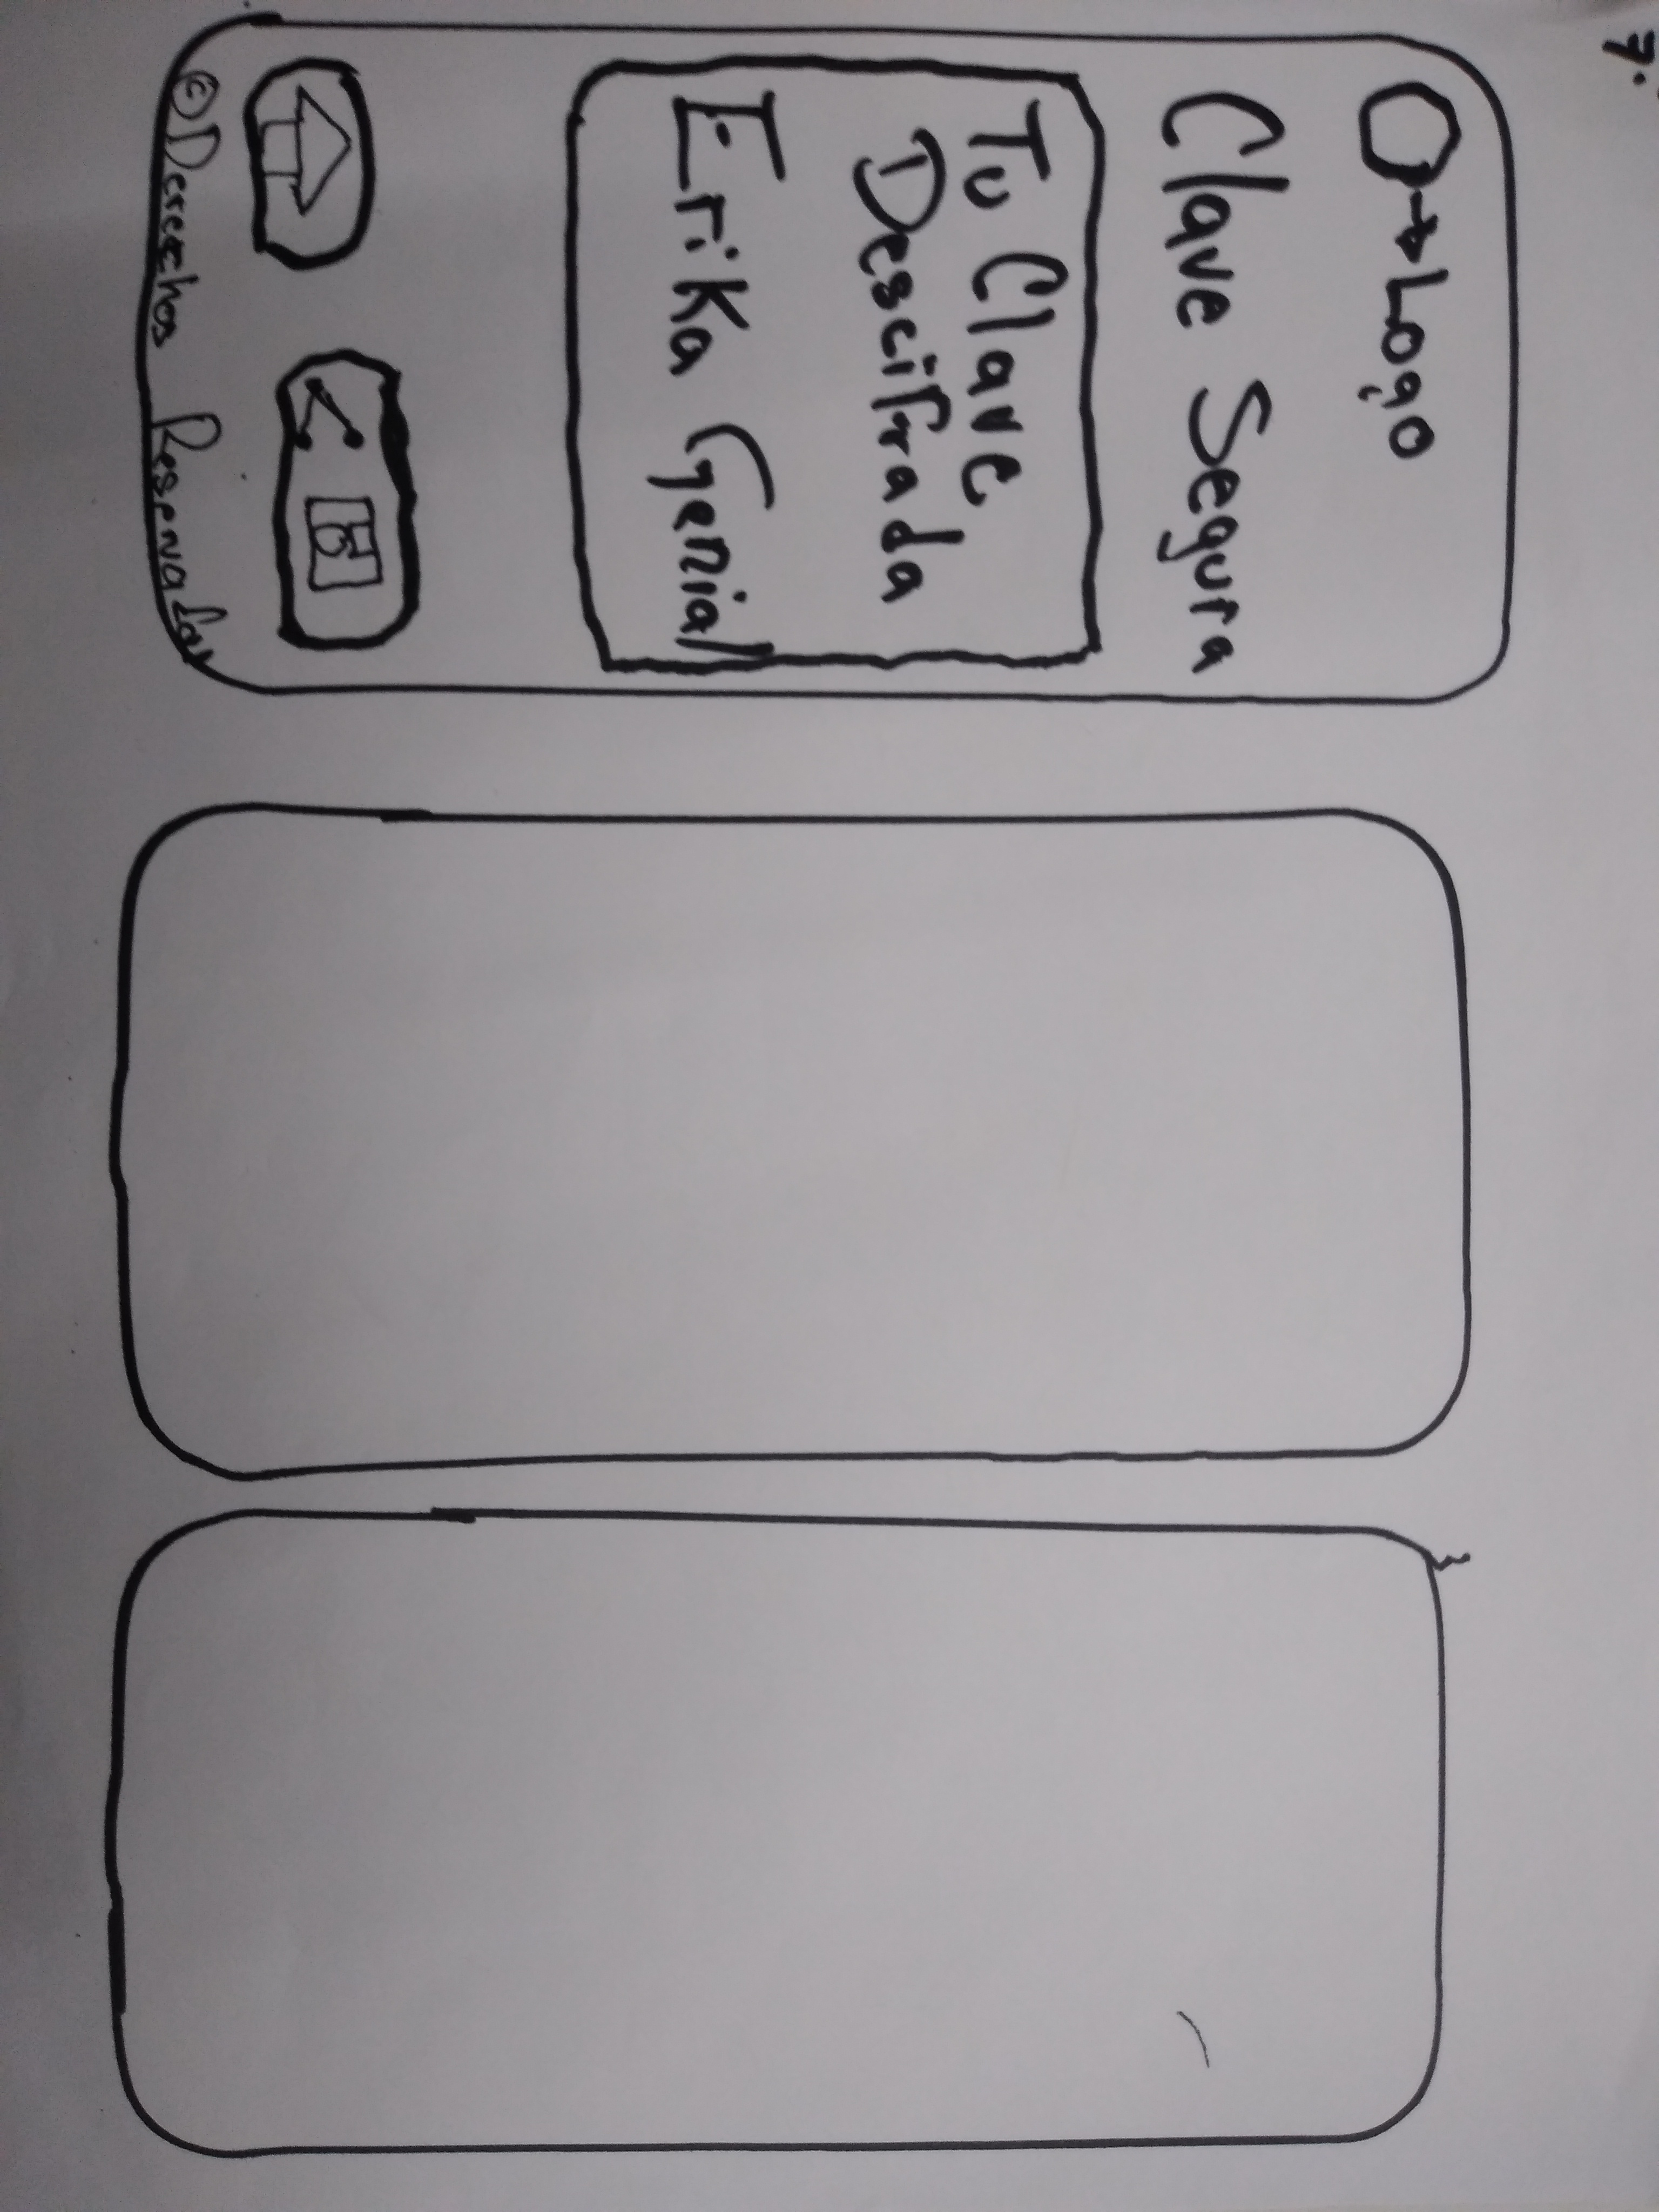 7.
Logo
Clave Segura
Tu Clave
Descifrada
Erika Genial
© Derechos Reservados